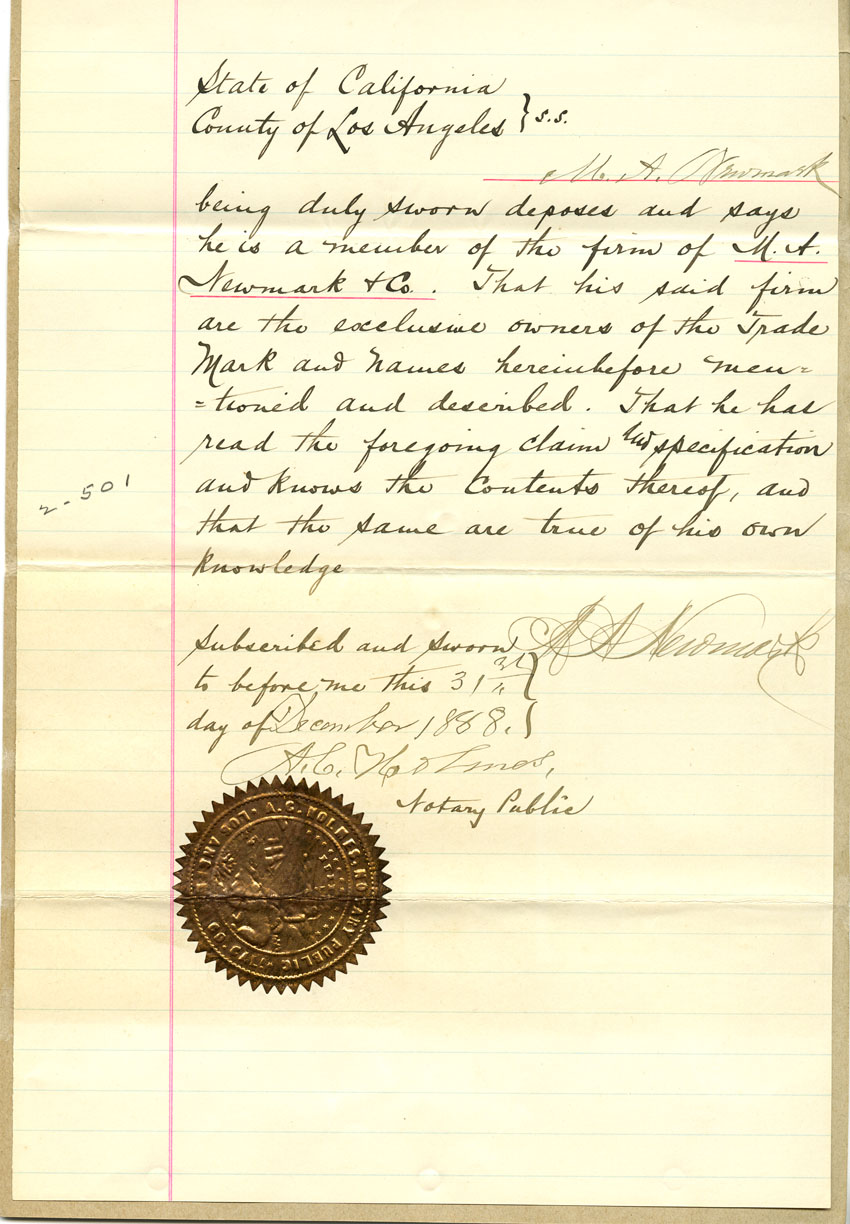 State of California
County of Los Angeles } s.s.
M. A. Newmark
being duly sworn deposes and says
he is a member of the firm of M. A.
Newmark & Co. That his said firm
are the exclusive owners of the Trade
Mark and Names hereinbefore men=
=tioned and described. That he has
read the foregoing claim and specification
and knows the Contents thereof, and
that the same are true of his own
knowledge
2-501
Subscribed and sworn
to before me this 31st
day of December 1888.
M A Newmark
A. C. Holmes,
Notary Public
A. C. HOLMES, NOTARY PUBLIC
LOS ANGELES CO. CAL.